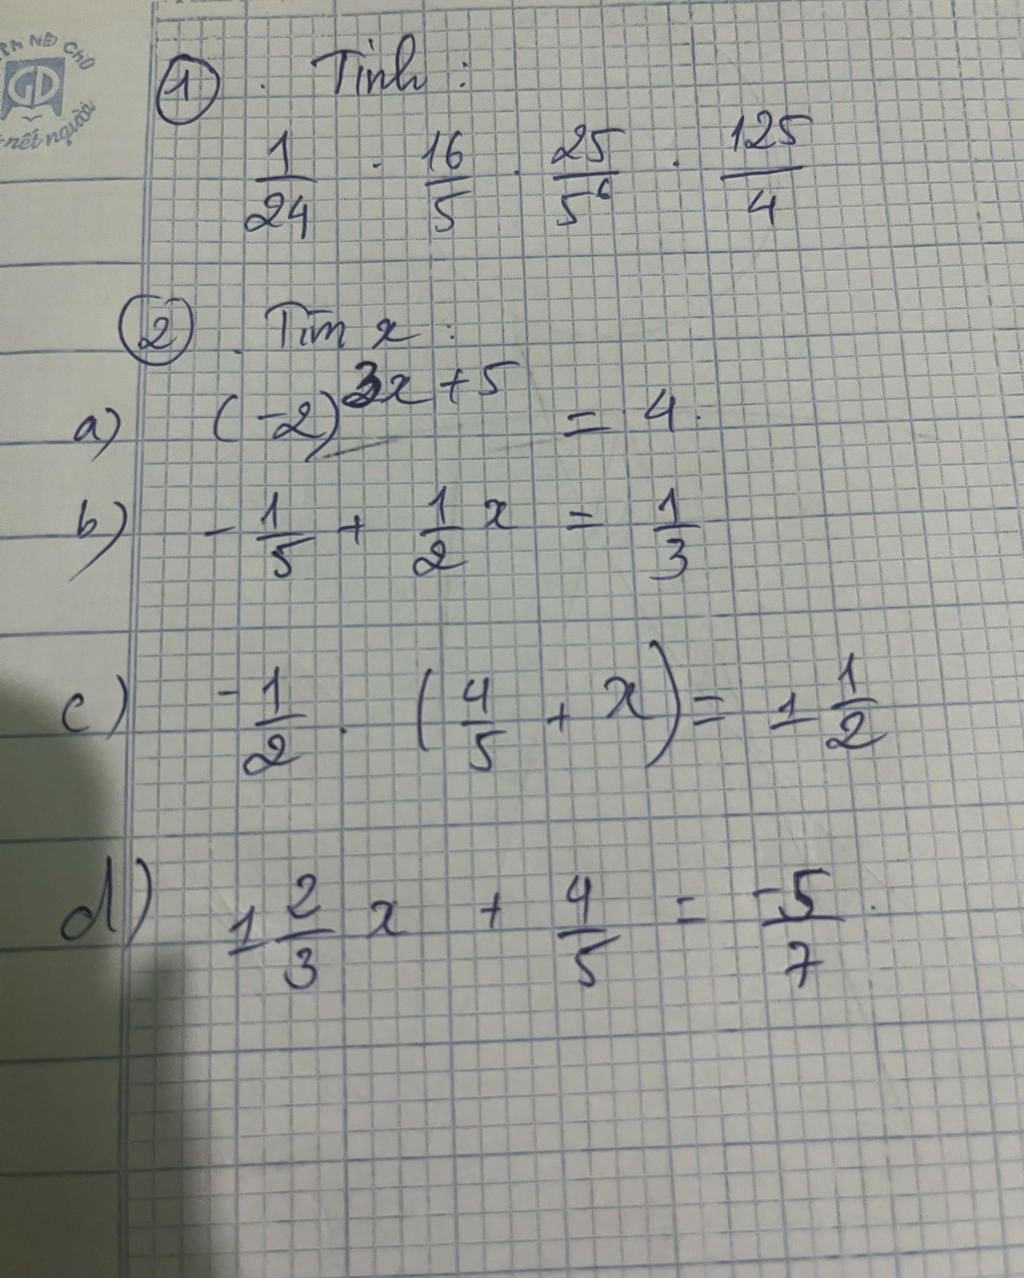 NÉT CHỮ
GD
nết người
① . Tính :
1/24 . 16/5 . 25/5⁶ . 125/4
② . Tìm x :
a) (-2)^(3x+5) = 4.
b) - 1/5 + 1/2 x = 1/3
c) - 1/2 . (4/5 + x) = 1 1/2
d) 1 2/3 x + 4/5 = -5/7 .